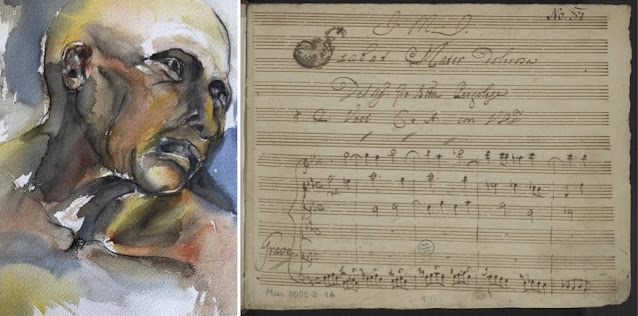 Stabat Mater Dolorosa
Del Sig. Gio Batta Pergolese
a 2 Voci C. e A. con
Grave
Mus. 3005-D-1a